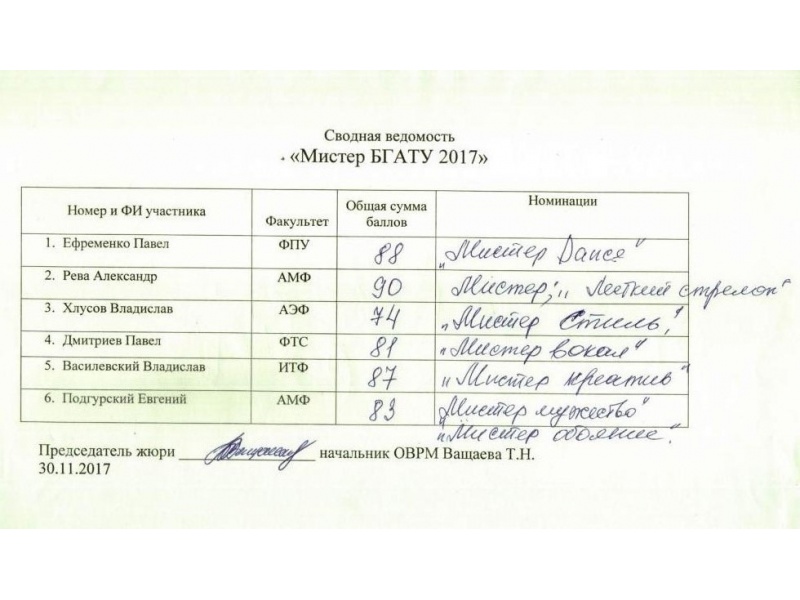 Сводная ведомость
«Мистер БГАТУ 2017»
Номер и ФИ участника Факультет Общая сумма баллов Номинации
1. Ефременко Павел ФПУ 88 „Мистер Dance"
2. Рева Александр АМФ 90 Мистер; „Меткий стрелок"
3. Хлусов Владислав АЭФ 74 „Мистер Стиль"
4. Дмитриев Павел ФТС 81 „Мистер вокал"
5. Василевский Владислав ИТФ 87 „Мистер креатив"
6. Подгурский Евгений АМФ 83 Мистер мужество"
„Мистер обояние".
Председатель жюри начальник ОВРМ Ващаева Т.Н.
30.11.2017